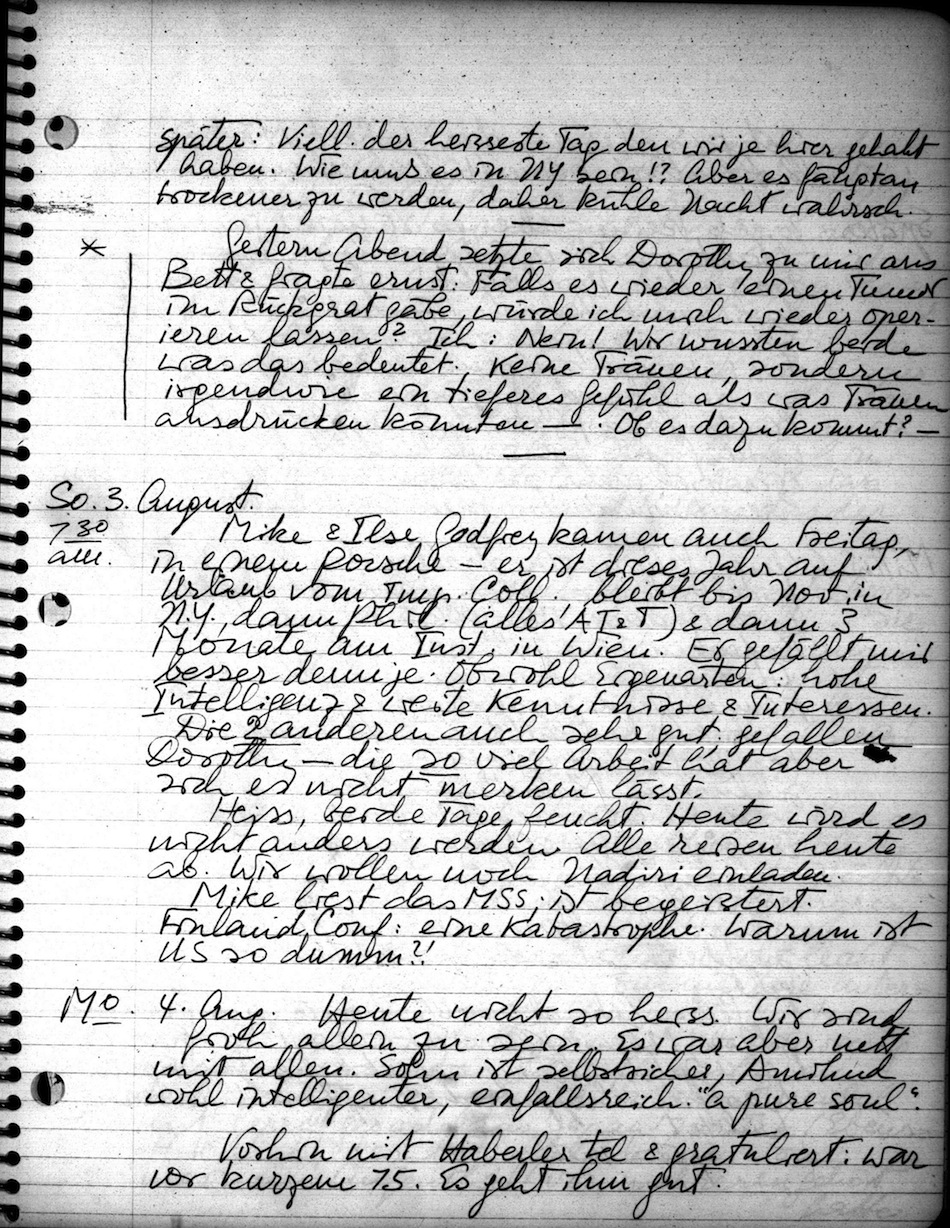 später: Viell. der heisseste Tag den wir je hier gehabt
haben. Wie muss es in NY sein!? Aber es fängt an
trockener zu werden, daher kühle Nacht wahrsch.
* Gestern Abend setzte sich Dorothy zu mir ans
Bett & fragte ernst: Falls es wieder einen Tumor
im Rückgrat gäbe, würde ich mich wieder oper-
ieren lassen? Ich: Nein! Wir wussten beide
was das bedeutet. Keine Tränen, sondern
irgendwie ein tieferes Gefühl als was Tränen
ausdrücken könnten — . Ob es dazu kommt? —
So. 3. August.
7 30 am. Mike & Ilse Godfrey kamen auch Freitag,
in einem Porsche – er ist dieses Jahr auf
Urlaub vom Imp. Coll. bleibt bis Nov. in
N.Y., dann Phil. (alles AT&T) & dann 3
Monate am Inst. in Wien. Er gefällt mir
besser denn je. Obwohl Eigenarten: hohe
Intelligenz & weite Kenntnisse & Interessen.
Die 2 anderen auch sehr gut, gefallen
Dorothy – die so viel Arbeit hat aber
sich es nicht merken lässt.
Heiss, beide Tage, feucht. Heute wird es
nicht anders werden. Alle reisen heute
ab. Wir wollen noch Nadiri einladen.
Mike liest das MSS, ist begeistert.
Finland Conf: eine Katastrophe. Warum ist
US so dumm?!
Mo. 4. Aug. Heute nicht so heiss. Wir sind
froh allein zu sein. Es war aber nett
mit allen. Sohn ist selbstsicher,
wohl intelligenter, einfallsreich. "a pure soul".
Vorhin mit Haberler tel & gratuliert: war
vor kurzem 75. Es geht ihm gut.